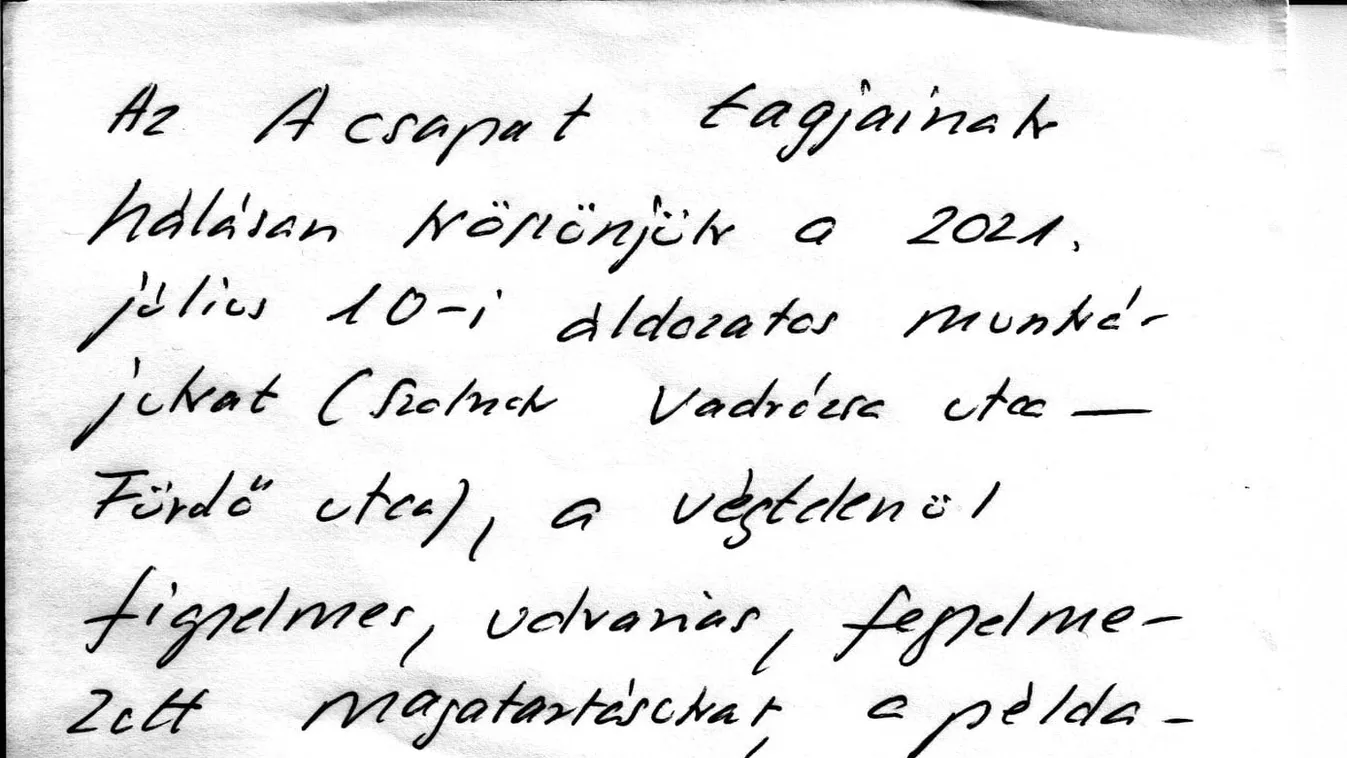 Az A csapat tagjainak
hálásan köszönjük a 2021.
július 10-i áldozatos munká-
jukat (Szolnok Vadrózsa utca —
Fürdő utca), a végtelenül
figyelmes, udvarias, fegyelme-
zett magatartásukat, a példa-